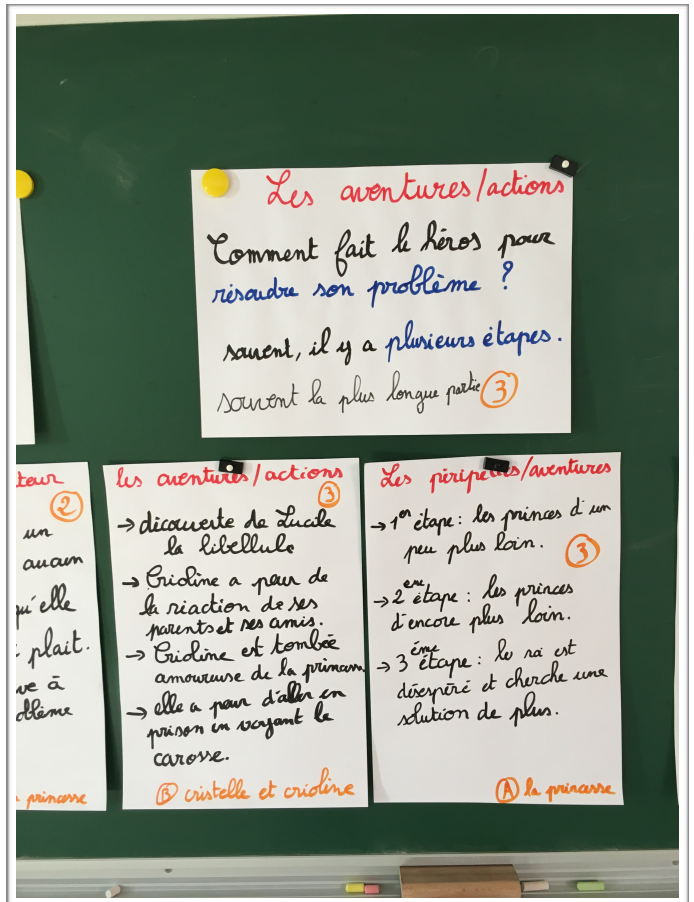 Les aventures/actions
Comment fait le héros pour
résoudre son problème ?
souvent, il y a plusieurs étapes.
souvent la plus longue partie 3
teur
2
un
aucun
qu'elle
plait.
ve à
oblème
princesse
les aventures/actions
3
→ découverte de Lucile
la libellule
→ Crioline a peur de
la réaction de ses
parents et ses amis.
→ Crioline est tombée
amoureuse de la princesse
→ elle a peur d'aller en
prison en voyant le
carosse.
B cristelle et crioline
Les péripéties/aventures
→ 1er étape : les princes d'un
peu plus loin.
3
→ 2ème étape : les princes
d'encore plus loin.
→ 3ème étape : le roi est
désespéré et cherche une
solution de plus.
A la princesse